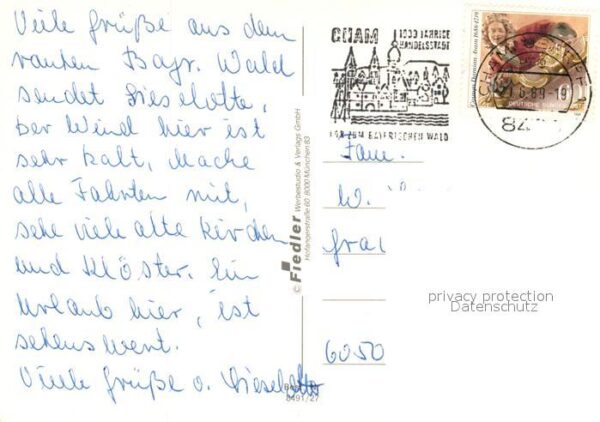 Viele Grüße aus dem
rauhen Bayr. Wald
sendet Lieselotte,
Der Wind hier ist
sehr kalt, Mache
alle Fahrten mit,
sehe viele alte Kirchen
und Klöster. Ein
Urlaub hier, ist
sehenswert.
Viele Grüße v. Lieselotte
CHAM 1000 JÄHRIGE
HANDELSSTADT
TOR ZUM BAYERISCHEN WALD
Cosmas Damian Asam 1686-1739
DEUTSCHE BUNDESPOST
6.89-19
© Fiedler Werbestudio & Verlags GmbH
Hofangerstraße 60 8000 München 83
Fam.
W.
6050
privacy protection
Datenschutz
Best.
8491/27